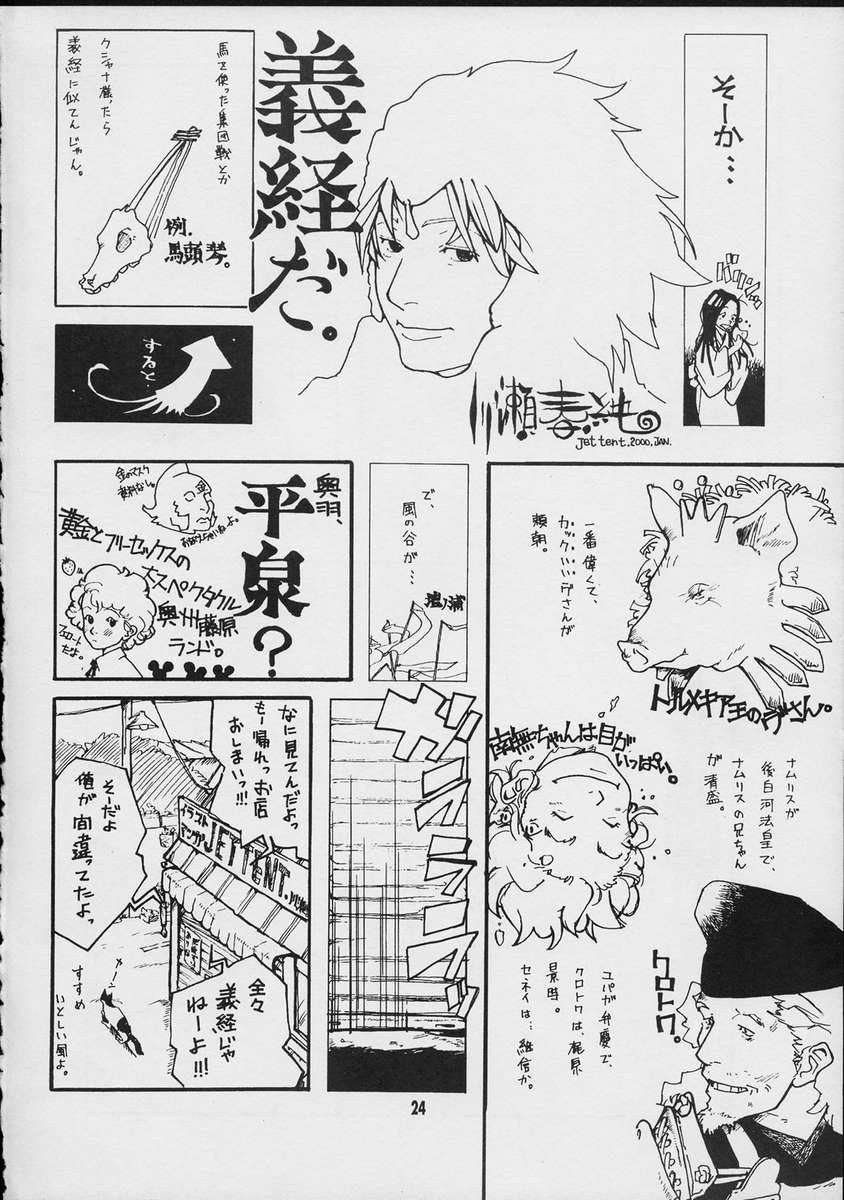 そーか…
バリッ
義経だ。
川瀬春純
Jet tent.2000.JAN.
馬を使った集団戦とか
クシャナ様ったら
義経に似てんじゃん。
例.
馬頭琴。
すると…
一番偉くて、
カックイイデさんが
頼朝。
トルメキア王のデさん。
ナムリスが
後白河法皇で、
ナムリスの兄ちゃん
が清盛。
南無ちゃんは目が
いっぱい。
ユパが弁慶で、
クロトワは、梶原
景時。
セネイは…継信か。
クロトワ。
で、
風の谷が…
壇ノ浦
奥羽、
平泉?
金のマスク
黄金とフリーセックスの
大スペクタクル
奥州藤原
ランド。
ガラララッ
なに見てんだよっ
もー帰れっお店
おしまいっ!!!
イラスト
マンガ
JET TENT.
そーだよ
俺が間違ってたよっ
全々
義経じゃ
ねーよ!!!
カーン
すすめ
いとしい風よ。
24